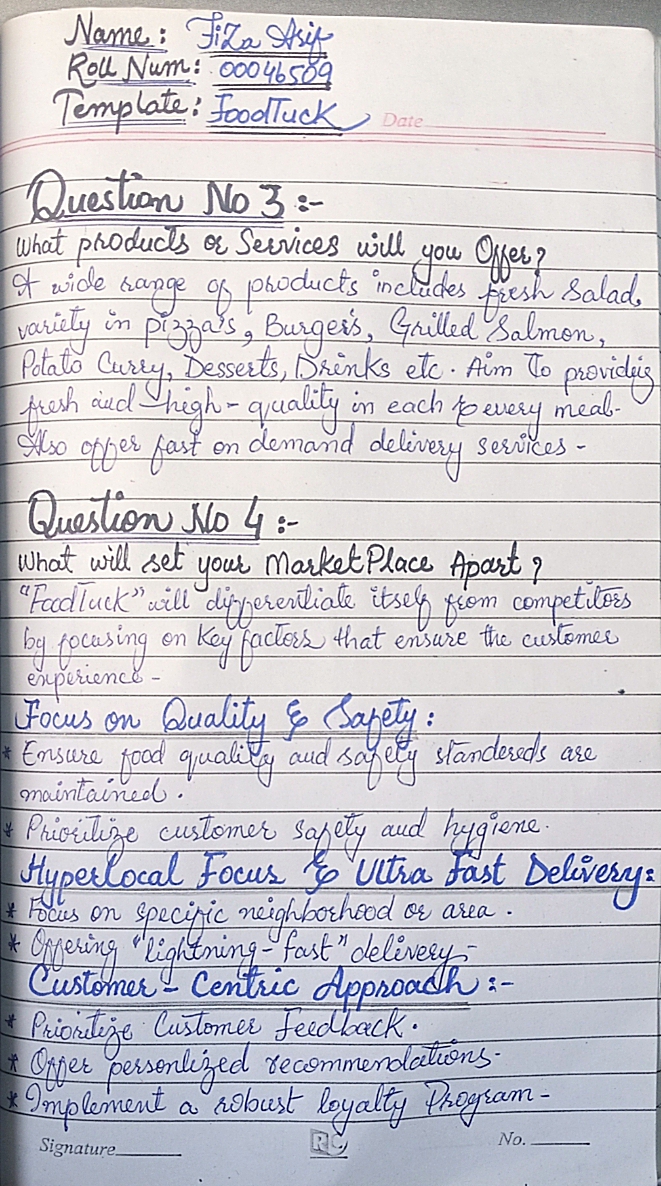 Name: FiZa Asif
Roll Num: 00046509
Template: FoodTuck
Date
Question No 3 :-
What products or Services will you Offer?
A wide range of products includes fresh Salad,
variety in pizza's, Burger's, Grilled Salmon,
Potato Curry, Desserts, Drinks etc. Aim To providing
fresh and high-quality in each & every meal-
Also offer fast on demand delivery services -
Question No 4 :-
What will set your MarketPlace Apart ?
"FoodTuck" will differentiate itself from competitors
by focusing on Key factors that ensure the customer
experience -
Focus on Quality & Safety :
* Ensure food quality and safety standereds are
maintained .
* Prioritize customer safety and hygiene.
Hyperlocal Focus & Ultra Fast Delivery:
* Focus on specific neighborhood or area .
* Offering "lightning-fast" delivery.-
Customer - Centric Approach :-
* Prioritize Customer Feedback.
* Offer personlized recommendations-
* Implement a robust loyalty Program -
Signature
RC
No.